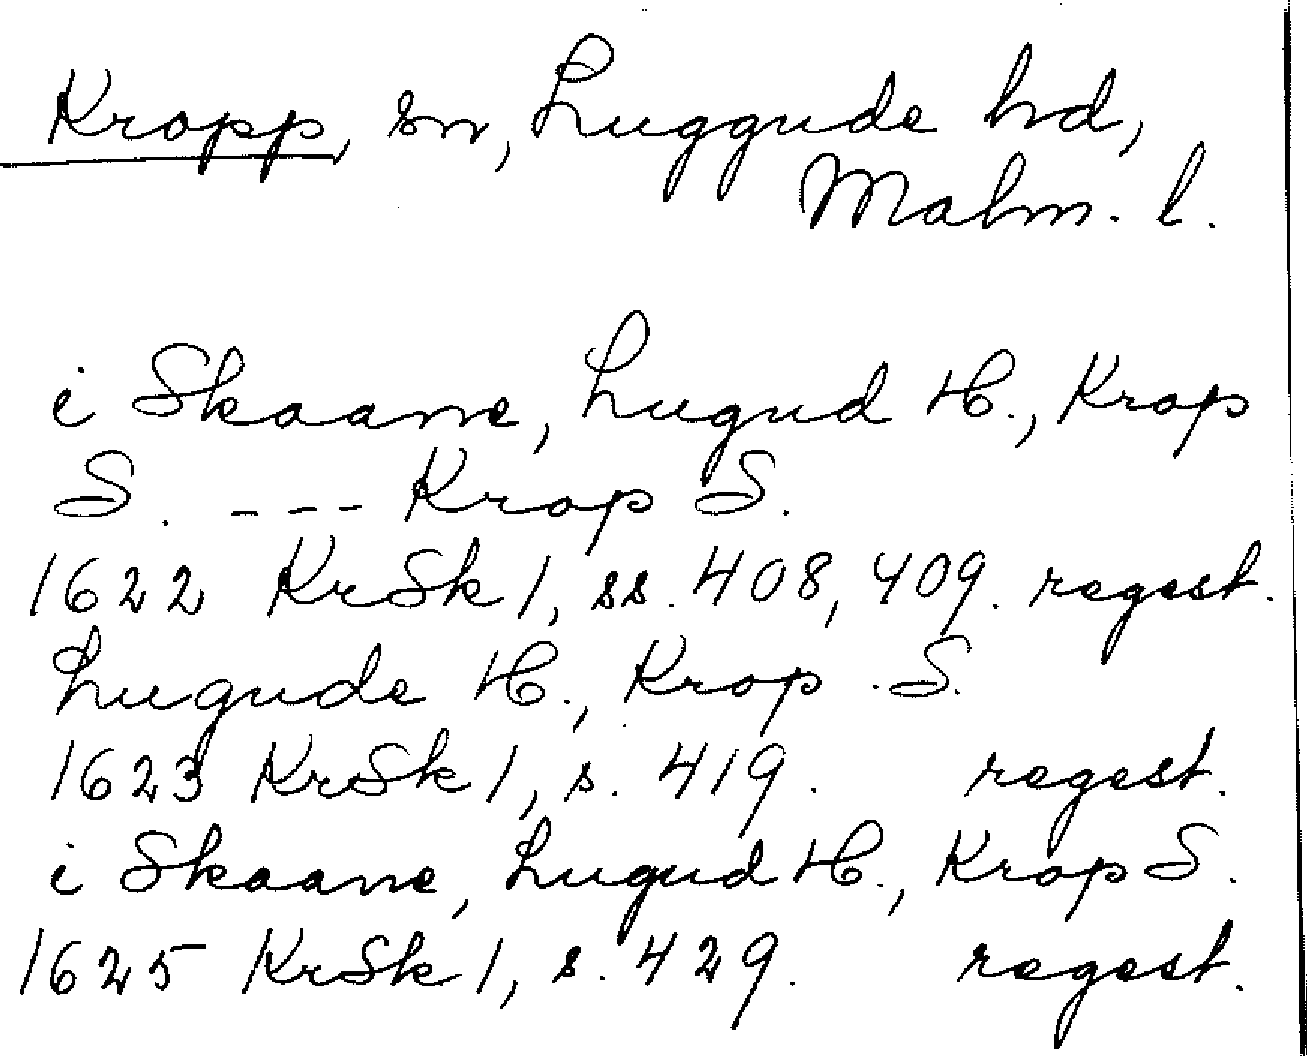 Kropp, sn, Luggude hd,
Malm. l.
i Skaane, Lugud H., Krop
S. --- Krop S.
1622 KrSk 1, ss. 408, 409. regest.
Lugude H., Krop S.
1623 KrSk 1, s. 419. regest.
i Skaane, Lugud H., Krop S.
1625 KrSk 1, s. 429. regest.